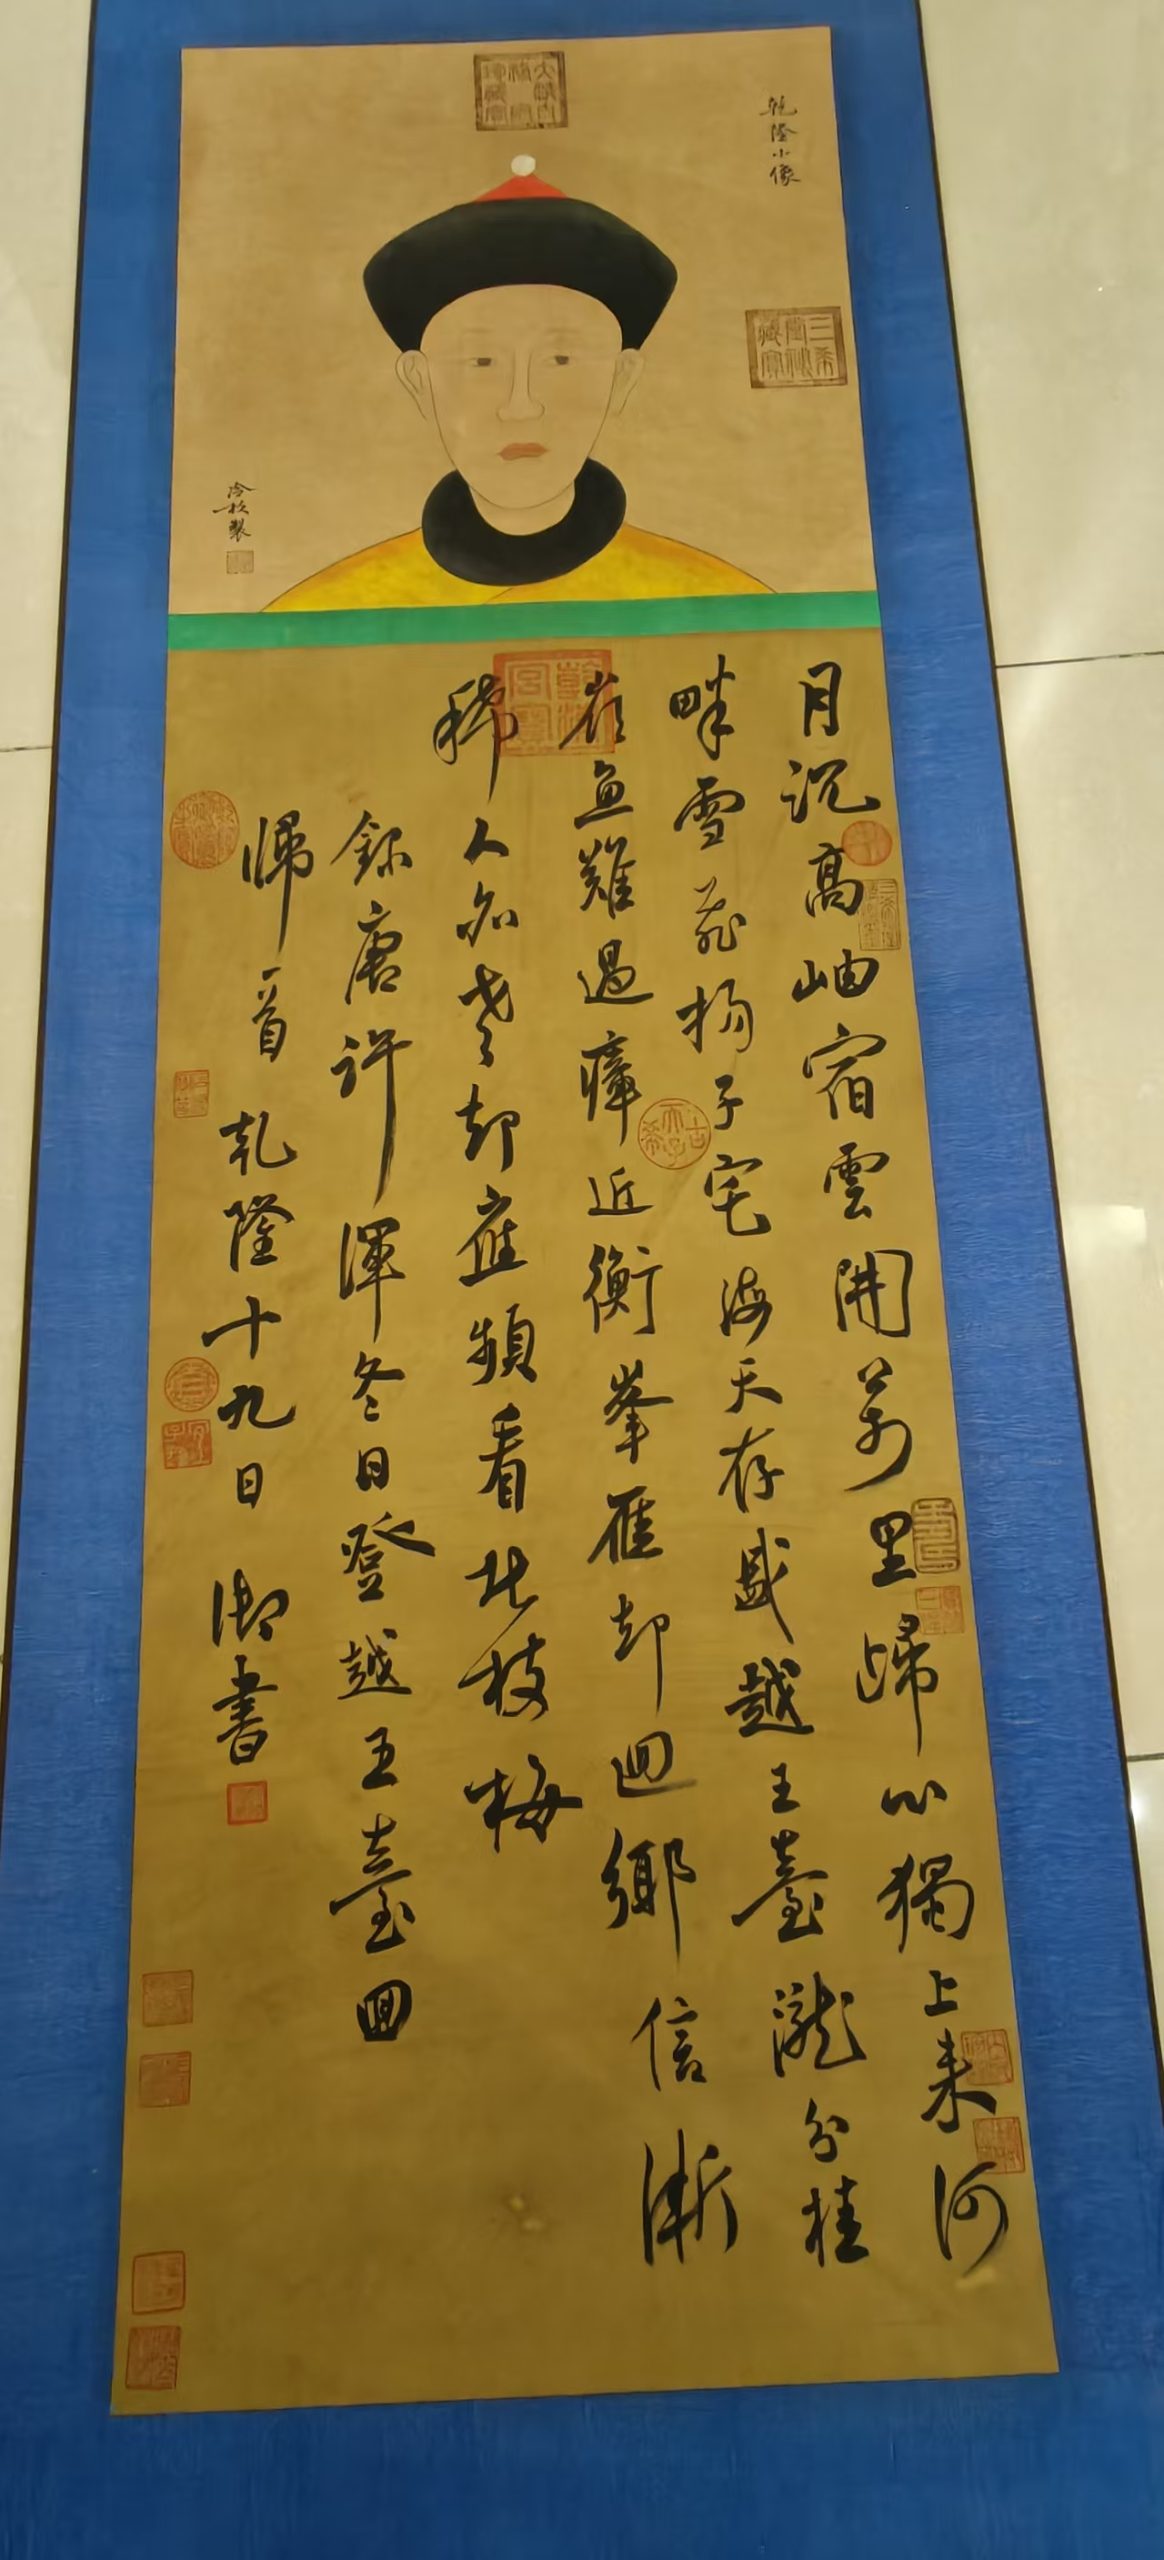 乾隆小像
三希堂秘藏寶
冷枚製
月沉高岫宿雲開萬里歸心獨上来河
畔雪飛揚子宅海天存盛越王臺瀧分桂
嶺魚難過瘴近衡峯雁却迴鄉信漸
稀人亦老却應頻看北枝梅
錄唐許渾冬日登越王臺回
歸一首 乾隆十九日 御書
古希天子